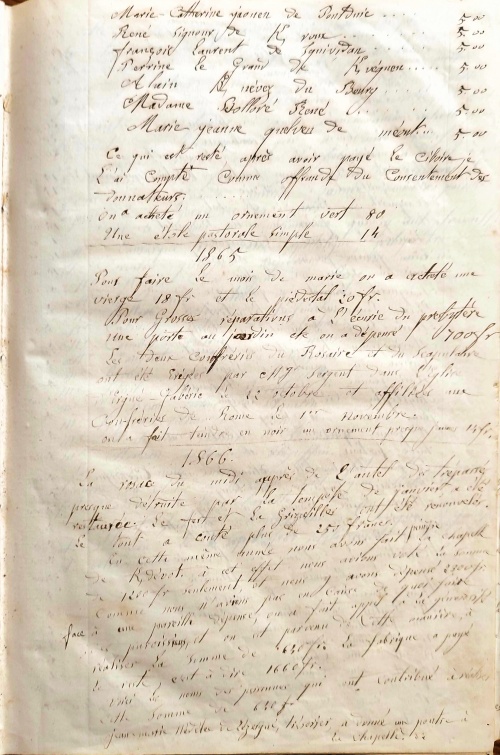 Marie Catherine jaonen de Pontnié .... 5.00
René Signour, de K/ roue ... 5.00
françois Laurent de Squividan .. 5.00
Perrine le Grand de K/ véguen ... 5.00
Alain K/ névez du Bourg 5.00
Madame Bolloré René ... 5.00
Marie jeanne quelven de ménti... 5.00
Ce qui est resté après avoir payé le Ciboire je
L'ai compté Comme offrande du Consentement des
donnatteurs.
On a acheté un ornement vert 80
Une étole pastorale simple 14
1865
Pour faire Le mois de marie on a acheté une
vierge 18 fr et le piédestal 20 fr.
Pour Grosses réparations à l'écurie du presbytère
une porte au jardin etc on a dépensé 700 fr
Les deux Confréries du Rosaire et du Scapulaire
ont été érigées par Mgr Sergent dans L'Eglise
d'Ergué-Gabéric le 22 octobre et affiliées aux
Confréries de Rome le 1er Novembre.
on a fait teindre en noir un ornement presque jaune 15 fr.
1866.
La rosace du midi auprès de L'autel des trépassés
presque détruite par la tempête de janvier a été
restaurée. Le fert et Le Grizailles ont été renouvelés.
Le tout a couté plus de 250 francs.
En cette même année nous avons fait la chapelle
de K/dévot. à cet effet nous avions voté la somme
de 1200 fr seulement, et nous y avons dépensé
Comme nous n'avions pas en caisse de quoi faire
face à une pareille dépense, on a fait appel à la générosité
des paroissiens, et on est parvenu de cette manière à
réaliser la somme de 640 fr. La fabrique a payé
le reste, c'est à dire 1660 fr.
Voici les noms des personnes qui ont contribué à réaliser
cette somme de 640 fr.
jean marie trésorier a donné une poutre à
la chapelle